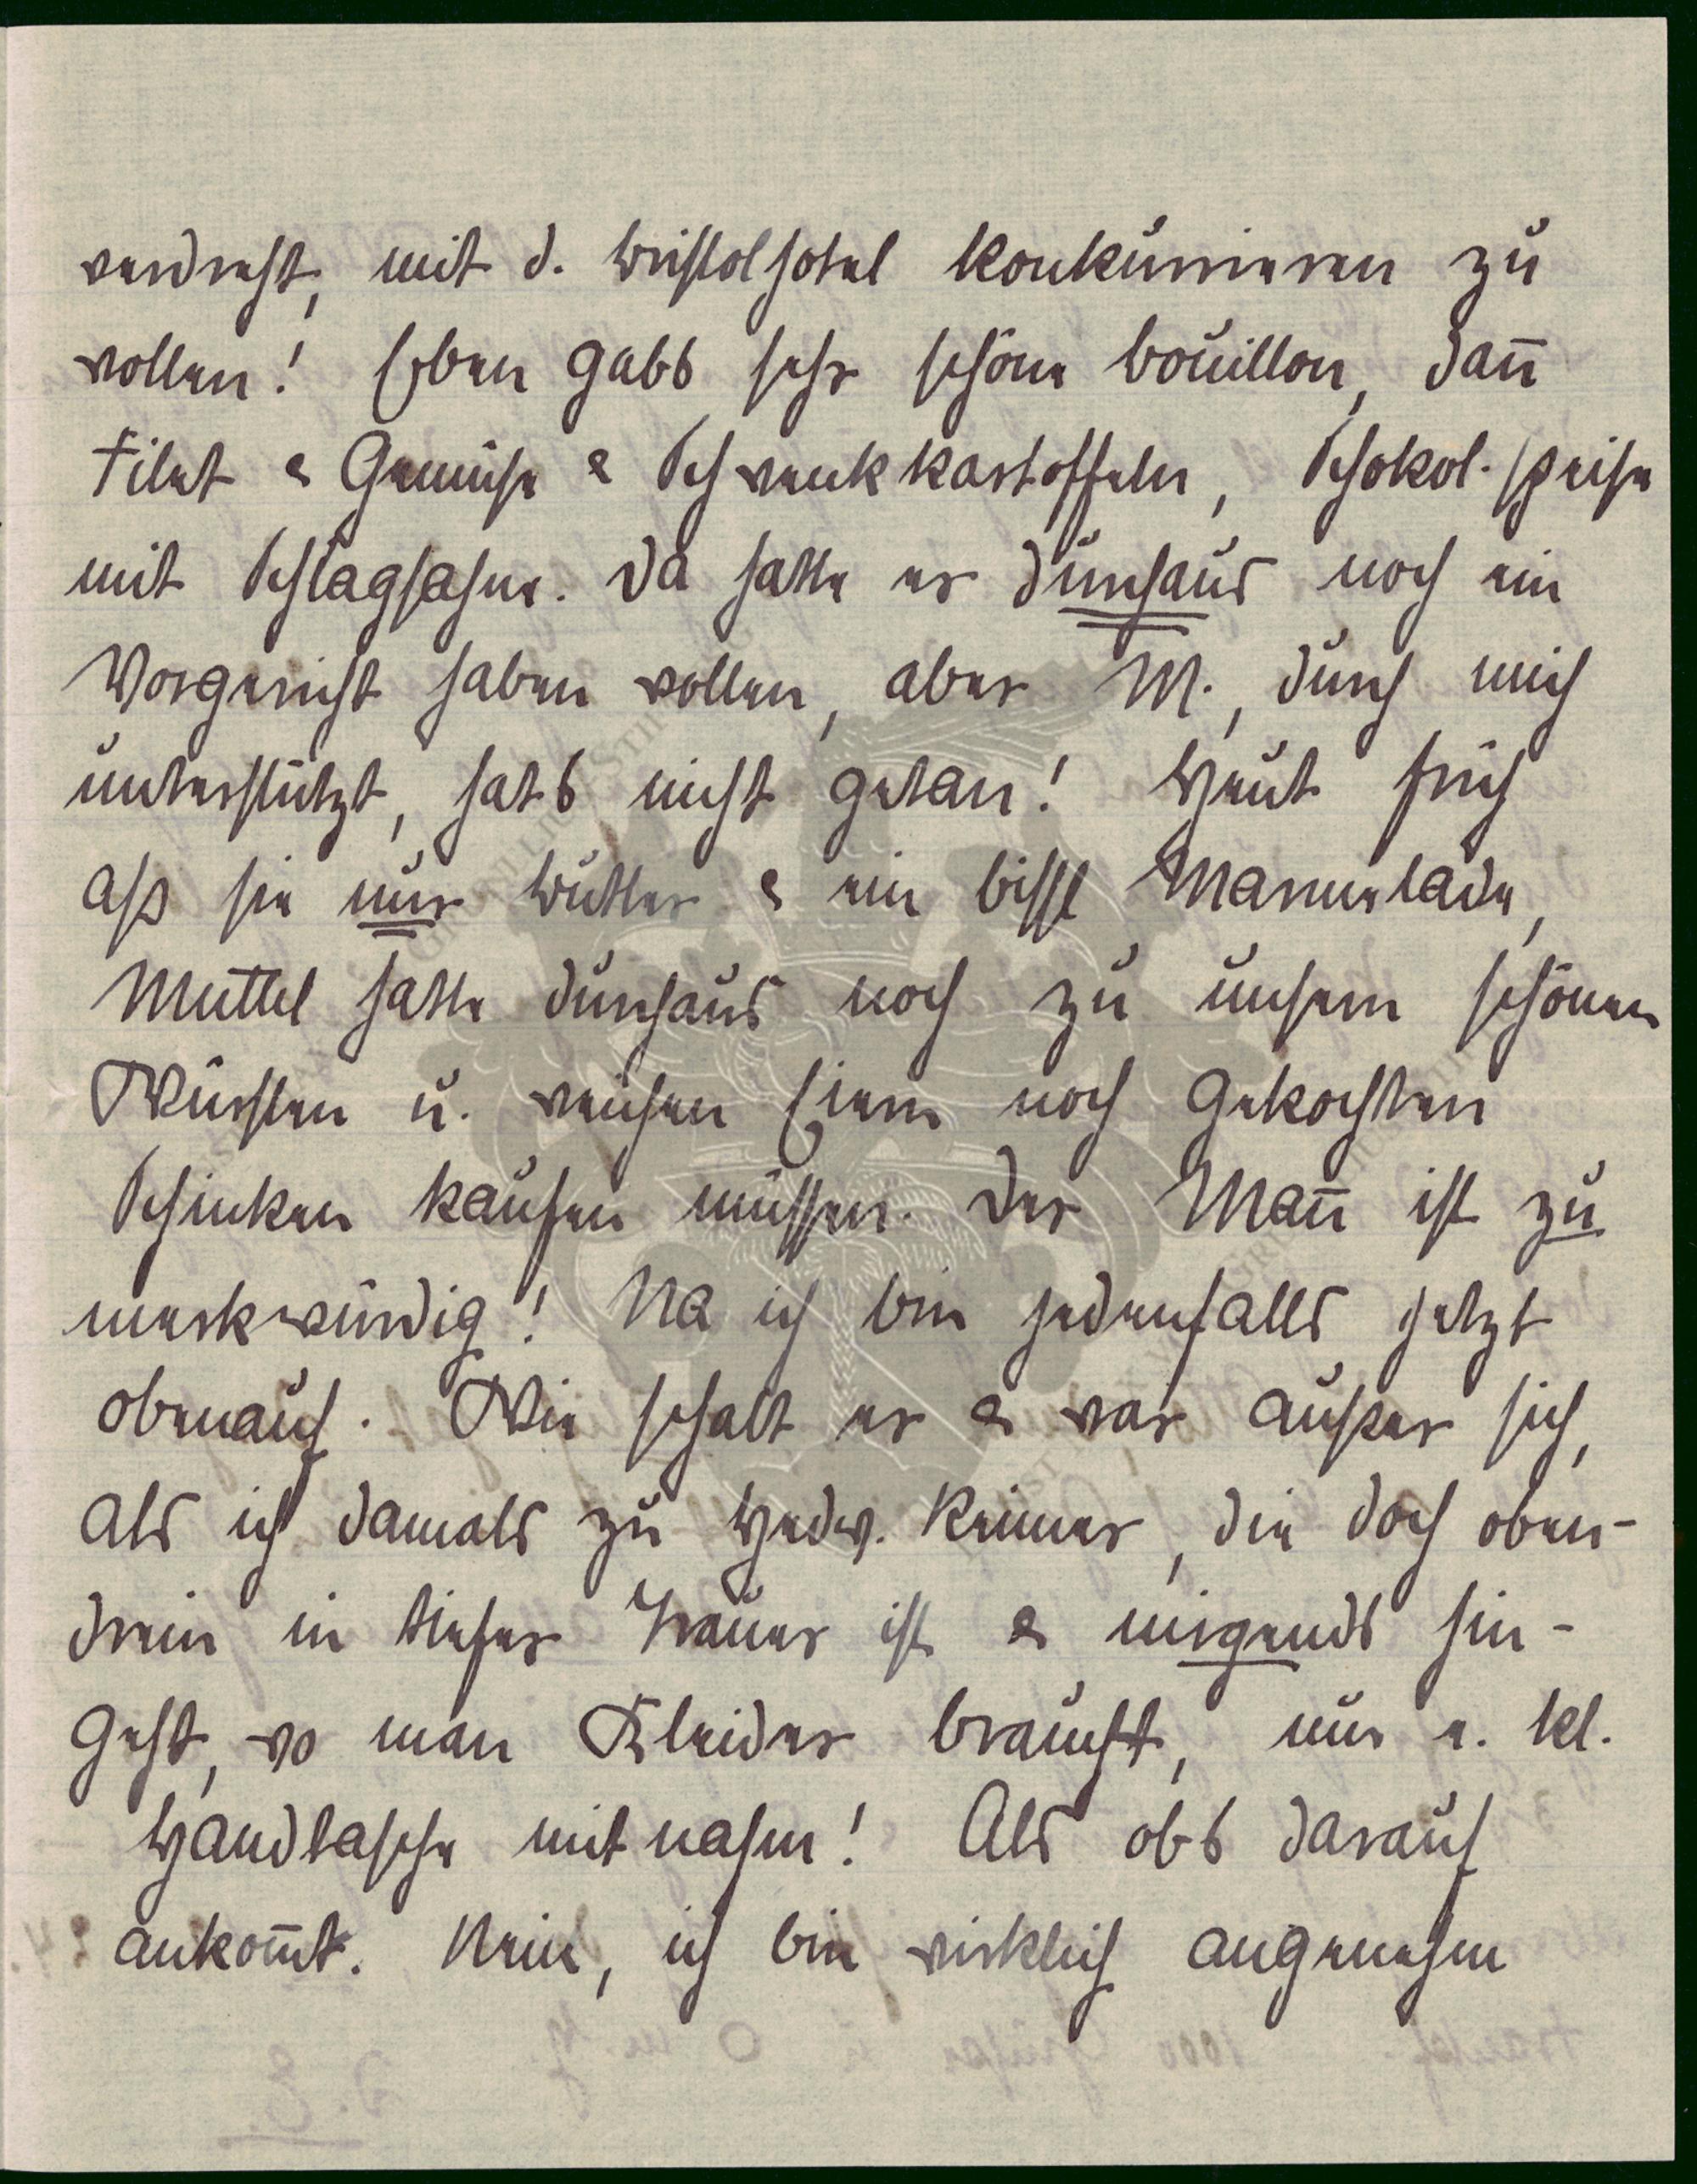 verdreht, mit d. Bristolhotel konkurrieren zu
wollen! Eben gabs sehr schöne Bouillon, dan̄
Filet & Gemüse & Schwenkkartoffeln, Schokol. speise
mit Schlagsahne. Da hatte er durchaus noch ein
Vorgericht haben wollen, aber M., durch mich
unterstützt, hats nicht getan! Heut früh
aß sie nur Butter & ein bissl Marmelade,
Muttel hatte durchaus noch zu unsern schönen
Würsten u. weichen Eiern noch gekochten
Schinken kaufen müssen. Der Man̄ ist zu
merkwürdig! Na ich bin jedenfalls jetzt
obenauf. Wie schalt er & war außer sich,
als ich damals zu Hedw. Reimer, die doch oben-
drein in tiefer Trauer ist & nirgends hin-
geht, wo man Kleider braucht, nur e. kl.
Handtasche mitnahm! Als obs darauf
ankom̄t. Nein, ich bin wirklich angenehm